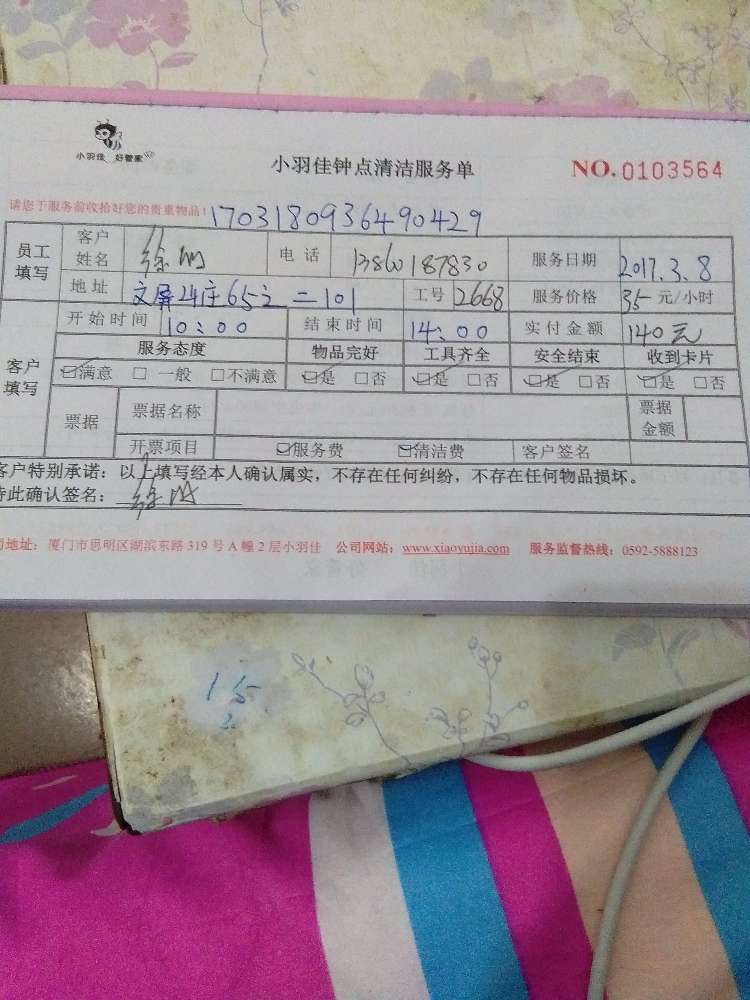 小羽佳 好管家
小羽佳钟点清洁服务单
NO.0103564
请您于服务前收拾好您的贵重物品!
1703180936490429
员工填写 客户姓名 徐 电话 13860187830 服务日期 2017.3.8
地址 文屏24庄65之二101 工号 2668 服务价格 35元/小时
客户填写 开始时间 10:00 结束时间 14:00 实付金额 140元
服务态度 物品完好 工具齐全 安全结束 收到卡片
☑满意 □一般 □不满意 ☑是 □否 ☑是 □否 ☑是 □否 ☑是 □否
票据 票据名称 票据金额
开票项目 ☑服务费 ☑清洁费 客户签名
客户特别承诺：以上填写经本人确认属实，不存在任何纠纷，不存在任何物品损坏。
特此确认签名：徐
司地址：厦门市思明区湖滨东路319号A幢2层小羽佳 公司网站：www.xiaoyujia.com 服务监督热线：0592-5888123
15
2